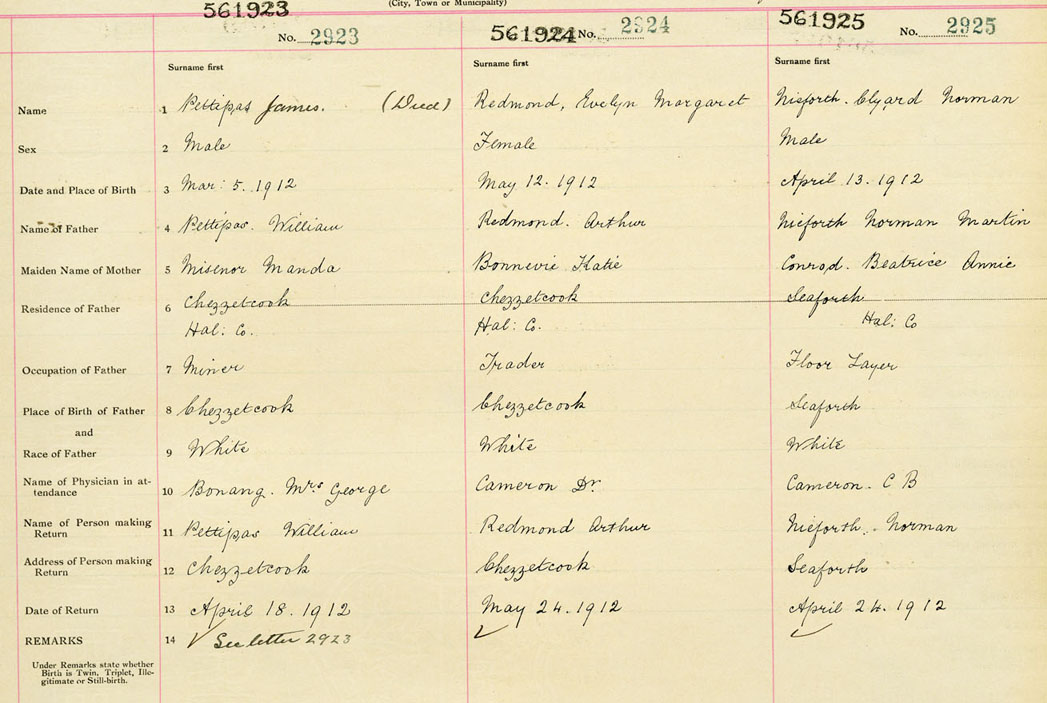 (City, Town or Municipality)
561923 561924 561925
No. 2923 No. 2924 No. 2925
Surname first Surname first Surname first
Name 1 Pettipas James. (Died) Redmond, Evelyn Margaret Nieforth. Clyard Norman
Sex 2 Male Female Male
Date and Place of Birth 3 Mar: 5. 1912 May 12. 1912 April 13. 1912
Name of Father 4 Pettipas. William Redmond. Arthur Nieforth Norman Martin
Maiden Name of Mother 5 Misenor Manda Bonnevie Katie Conrod. Beatrice Annie
Residence of Father 6 Chezzetcook Chezzetcook Seaforth
Hal: Co. Hal: Co. Hal: Co
Occupation of Father 7 Miner Trader Floor Layer
Place of Birth of Father 8 Chezzetcook Chezzetcook Seaforth
and
Race of Father 9 White White White
Name of Physician in at-
tendance 10 Bonang. Mrs George Cameron Dr. Cameron - C B
Name of Person making
Return 11 Pettipas William Redmond Arthur Nieforth - Norman
Address of Person making
Return 12 Chezzetcook Chezzetcook Seaforth
Date of Return 13 April 18. 1912 May 24. 1912 April 24. 1912
REMARKS 14 ✓ See letter 2923 ✓ ✓
Under Remarks state whether
Birth is Twin, Triplet, Ille-
gitimate or Still-birth.